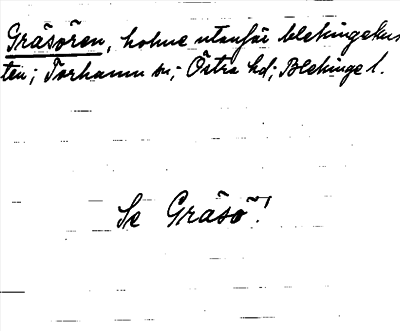 Gräsören, holme utanför blekingekus
ten; Torhamn sn; Östra hd; Blekinge l.
Se Gräsö!